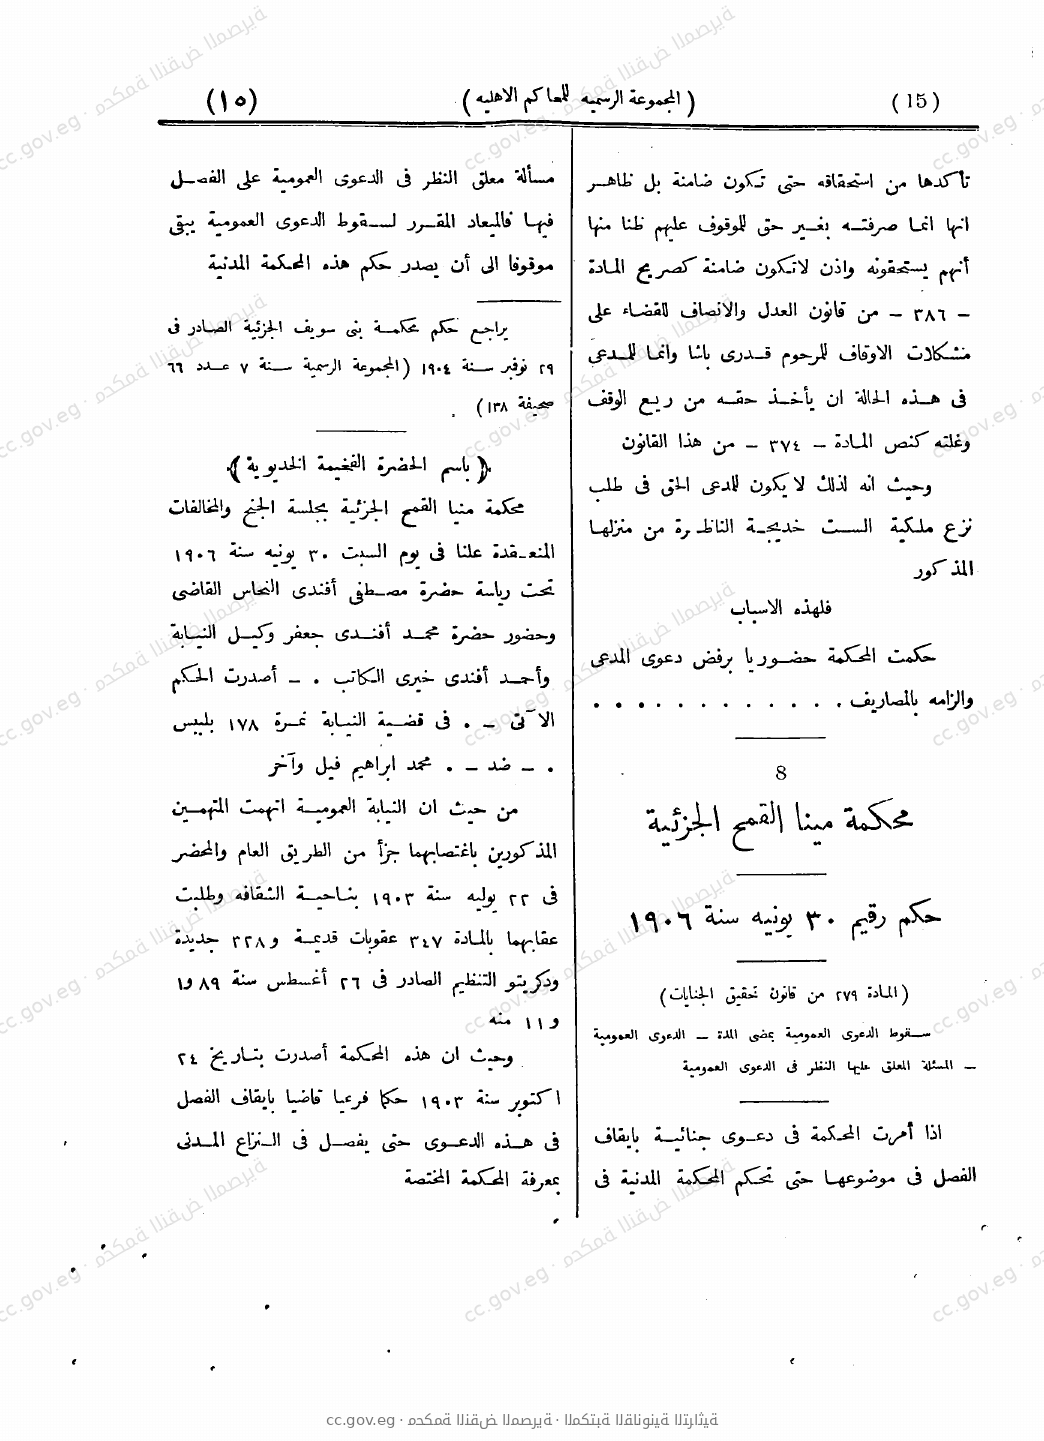 (15) (المجموعة الرسميه للمحاكم الاهليه) (١٥)
تأكدها من استحقاقه حتى تكون ضامنة بل ظاهر
انها انما صرفته بغير حق للموقوف عليهم ظنا منها
أنهم يستحقونه واذن لاتكون ضامنة كصريح المادة
– ٣٨٦ – من قانون العدل والانصاف للقضاء على
مشكلات الاوقاف للمرحوم قدرى باشا وانما للمدعى
فى هذه الحالة ان يأخذ حقه من ريع الوقف
وغلته كنص المادة – ٣٧٤ – من هذا القانون
وحيث انه لذلك لا يكون للمدعى الحق فى طلب
نزع ملكية الست خديجة الناظرة من منزلها
المذكور
فلهذه الاسباب
حكمت المحكمة حضوريا برفض دعوى المدعى
والزامه بالمصاريف . . . . . . . . . . . .
8
محكمة مينا القمح الجزئية
حكم رقيم ٣٠ يونيه سنة ١٩٠٦
(المادة ٢٧٩ من قانون تحقيق الجنايات)
سقوط الدعوى العمومية بمضى المدة – الدعوى العمومية
– المسئلة المعلق عليها النظر فى الدعوى العمومية
اذا أمرت المحكمة فى دعوى جنائية بايقاف
الفصل فى موضوعها حتى تحكم المحكمة المدنية فى
مسألة معلق النظر فى الدعوى العمومية على الفصل
فيها فالميعاد المقرر لسقوط الدعوى العمومية يبقى
موقوفا الى أن يصدر حكم هذه المحكمة المدنية
يراجع حكم محكمة بنى سويف الجزئية الصادر فى
٢٩ نوفبر سنة ١٩٠٤ (المجموعة الرسمية سنة ٧ عدد ٦٦
صحيفة ١٣٨) .
﴿باسم الحضرة الفخيمة الخديوية﴾
محكمة منيا القمح الجزئية بجلسة الجنح والمخالفات
المنعقدة علنا فى يوم السبت ٣٠ يونيه سنة ١٩٠٦
تحت رياسة حضرة مصطفى أفندى النحاس القاضى
وحضور حضرة محمد أفندى جعفر وكيل النيابة
وأحمد أفندى خيرى الكاتب . – أصدرت الحكم
الآتى – . فى قضية النيابة نمرة ١٧٨ بلبيس
. – ضد – . محمد ابراهيم فيل وآخر
من حيث ان النيابة العمومية اتهمت المتهمين
المذكورين باغتصابهما جزأ من الطريق العام والمحضر
فى ٢٢ يوليه سنة ١٩٠٣ بناحية الشقافه وطلبت
عقابهما بالمادة ٣٤٧ عقوبات قديمة و٣٣٨ جديدة
ودكريتو التنظيم الصادر فى ٢٦ أغسطس سنة ٨٩ و١
و١١ منه
وحيث ان هذه المحكمة أصدرت بتاريخ ٢٤
اكتوبر سنة ١٩٠٣ حكما فرعيا قاضيا بايقاف الفصل
فى هذه الدعوى حتى يفصل فى النزاع المدنى
بمعرفة المحكمة المختصة
cc.gov.eg · محكمة النقض المصرية · المكتبة القانونية التراثية